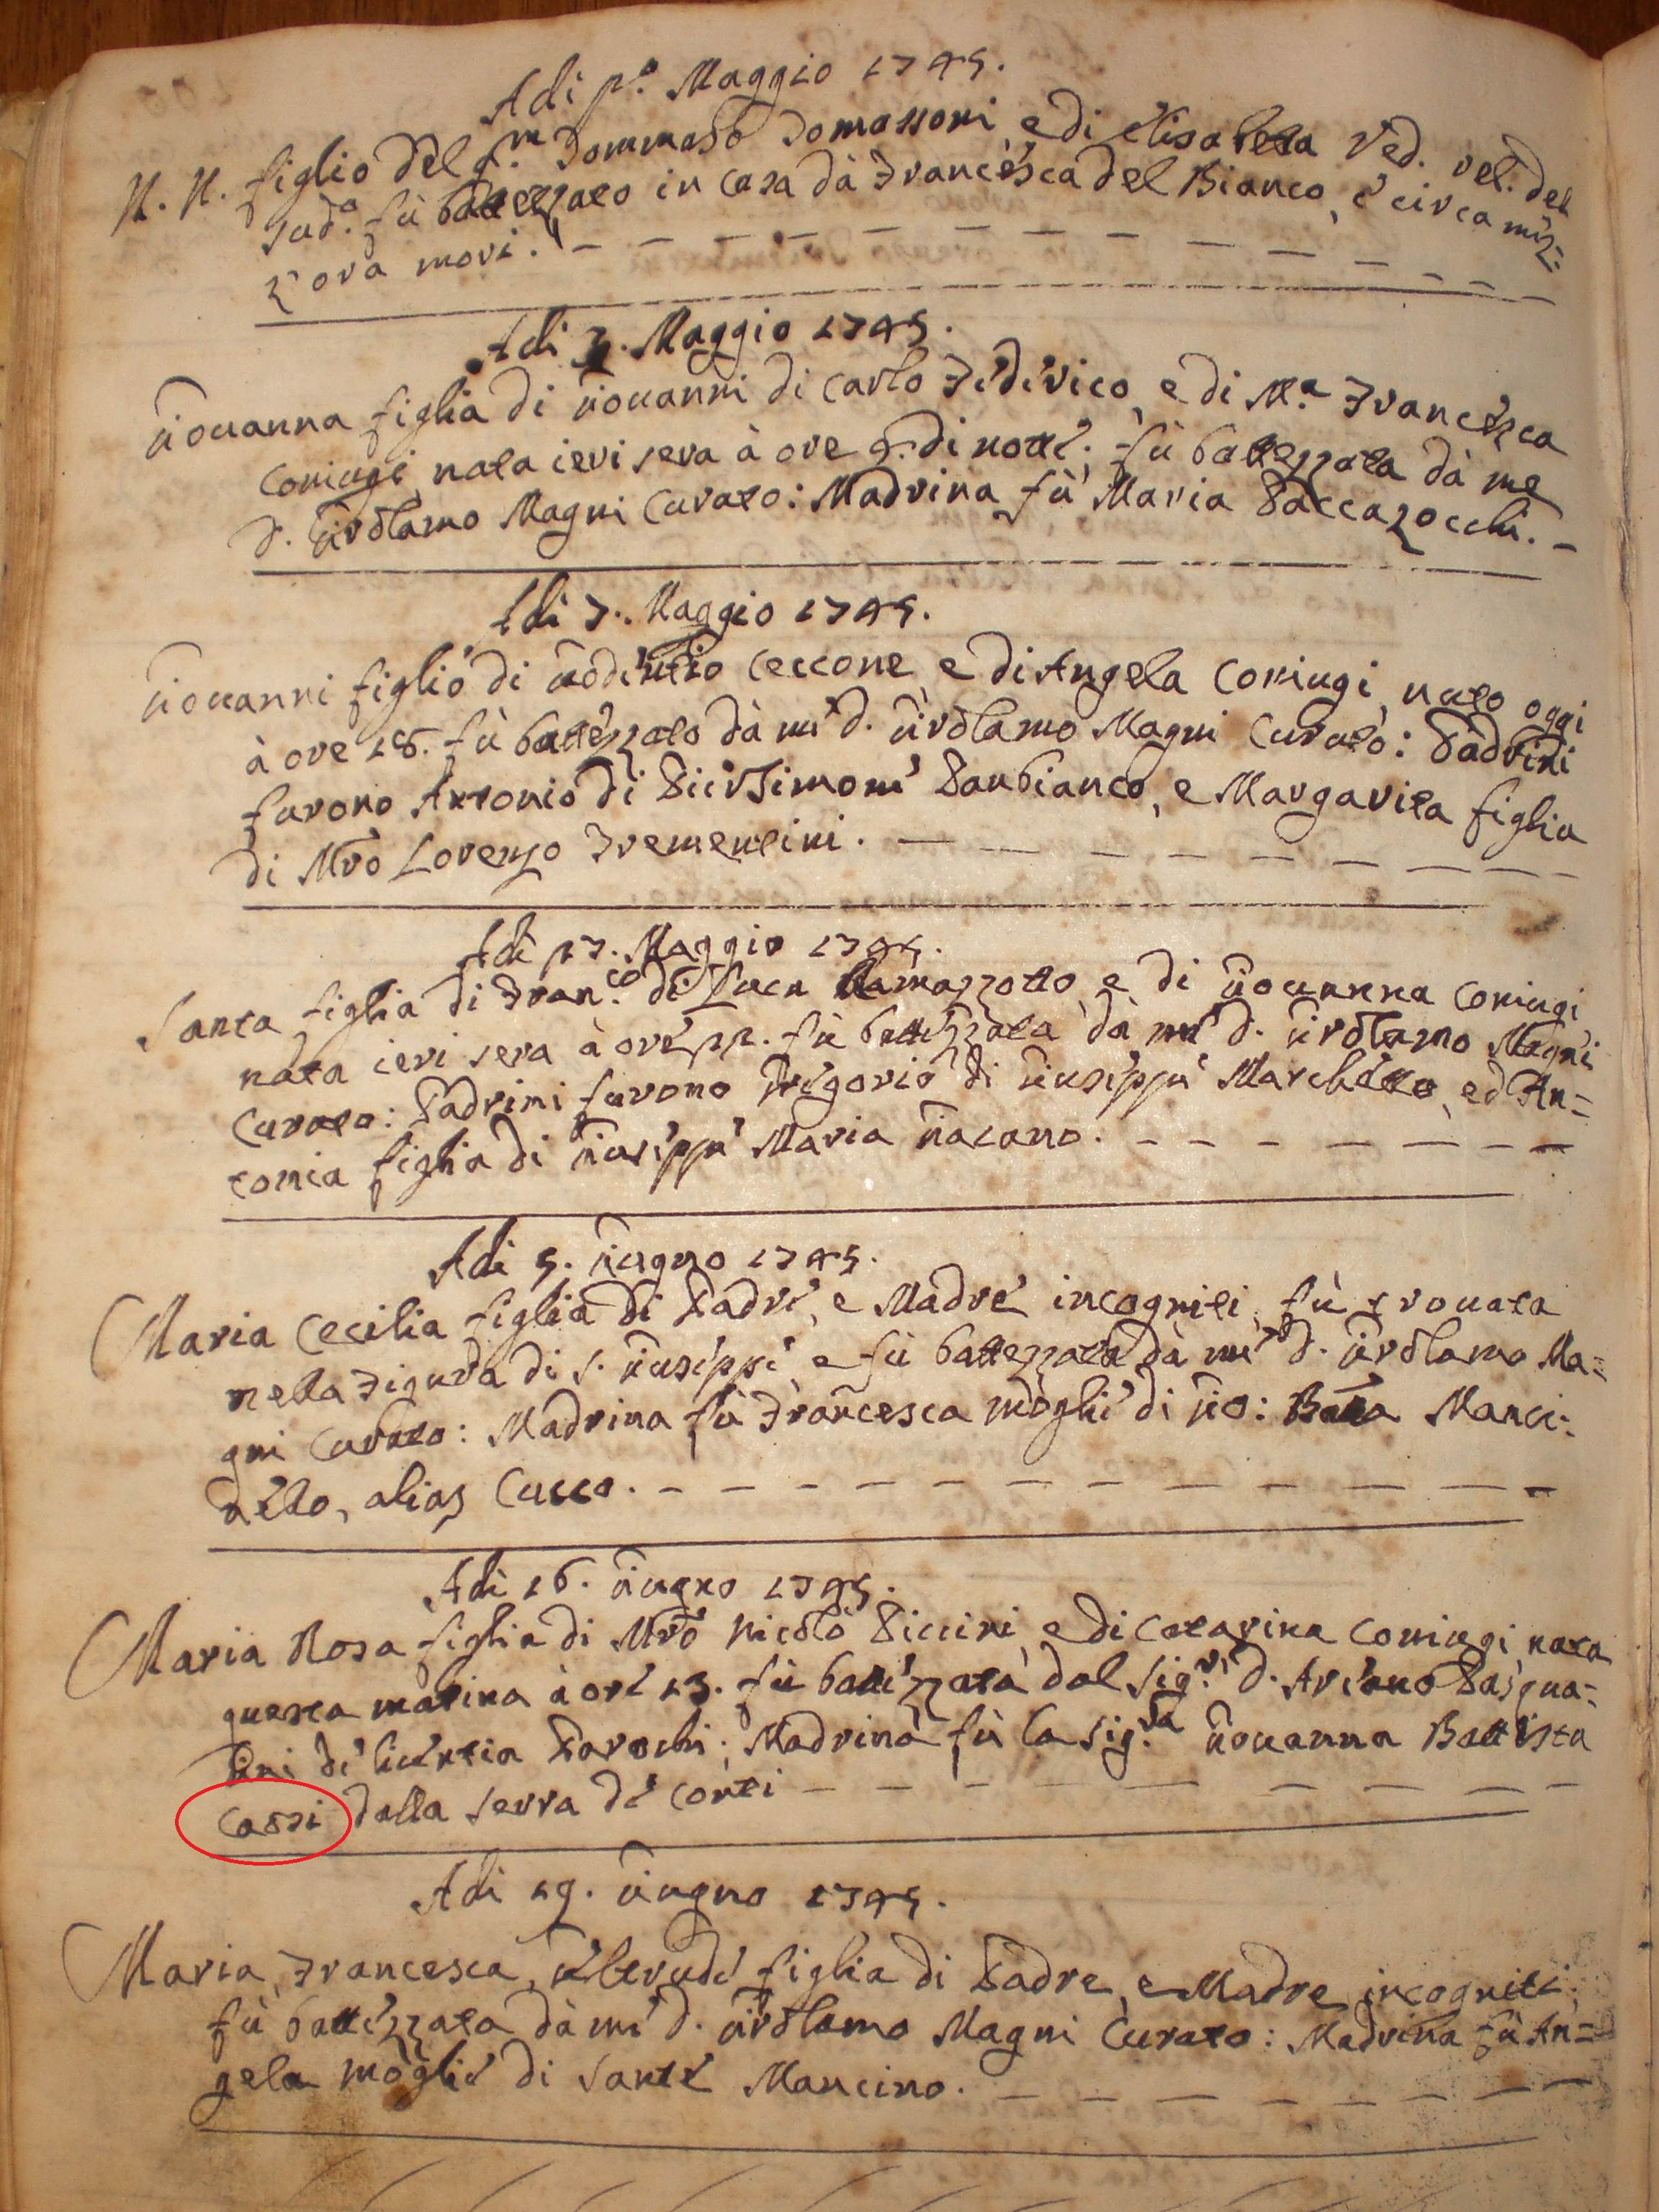 Adi p.º Maggio 1745.
N. N. figlio del q.m Tommaso Tomassoni, e di Elisabetta Ved. rel. del
sud.º fù battezzato in casa dà Francesca del Bianco, e circa mèz=
z'ora morì.
Adi 3. Maggio 1745.
Giouanna figlia di Giouanni di Carlo Federico, e di M.ª Francesca
coniugi nata ieri sera à ore 9. di notte. fù battezzata dà me
D. Girolamo Magni Curato: Madrina fù Maria Paccazocchi.
Adi 7. Maggio 1745.
Giouanni figlio di Godenzio Ceccone e di Angela Coniugi, nato oggi
à ore 18. fù battezzato dà me d. Girolamo Magni Curato: Padrini
furono Antonio di Piersimone Panbianco, e Margarita figlia
di Mrõ Lorenzo Trementini.
Adi 17. Maggio 1745.
Santa figlia di Fran.co di Luca Ramazzotto, e di Giouanna Coniugi
nata ieri sera à ore 22. fù battezzata dà me d. Girolamo Magni
Curato: Padrini furono Gregorio di Giuseppe Marchetto, ed An=
tonia figlia di Giuseppe Maria Giacomo.
Adi 5. Giugno 1745.
Maria Cecilia figlia di Padre, e Madre incogniti, fù trouata
nella Figura di S. Giuseppe, e fù battezzata dà me d. Girolamo Ma=
gni Curato: Madrina fù Francesca moglie di Gio: Batta Manci=
nello, alias Cucco.
Adi 16. Giugno 1745.
Maria Rosa figlia di Mrõ Nicolò Piccini, e di Catarina Coniugi, nata
questa matina à ore 13. fù battezzata dal Sig.r d. Ariano Pasqua=
lini de licentia Parochi; Madrina fù la Sig.ra Giouanna Battista
Cassi dalla Serra de' Conti
Adi 19. Giugno 1745.
Maria, Francesca, figlia di Padre, e Madre incogniti,
fù battezzata dà me d. Girolamo Magni Curato: Madrina fù An=
gela moglie di Sante Mancino.